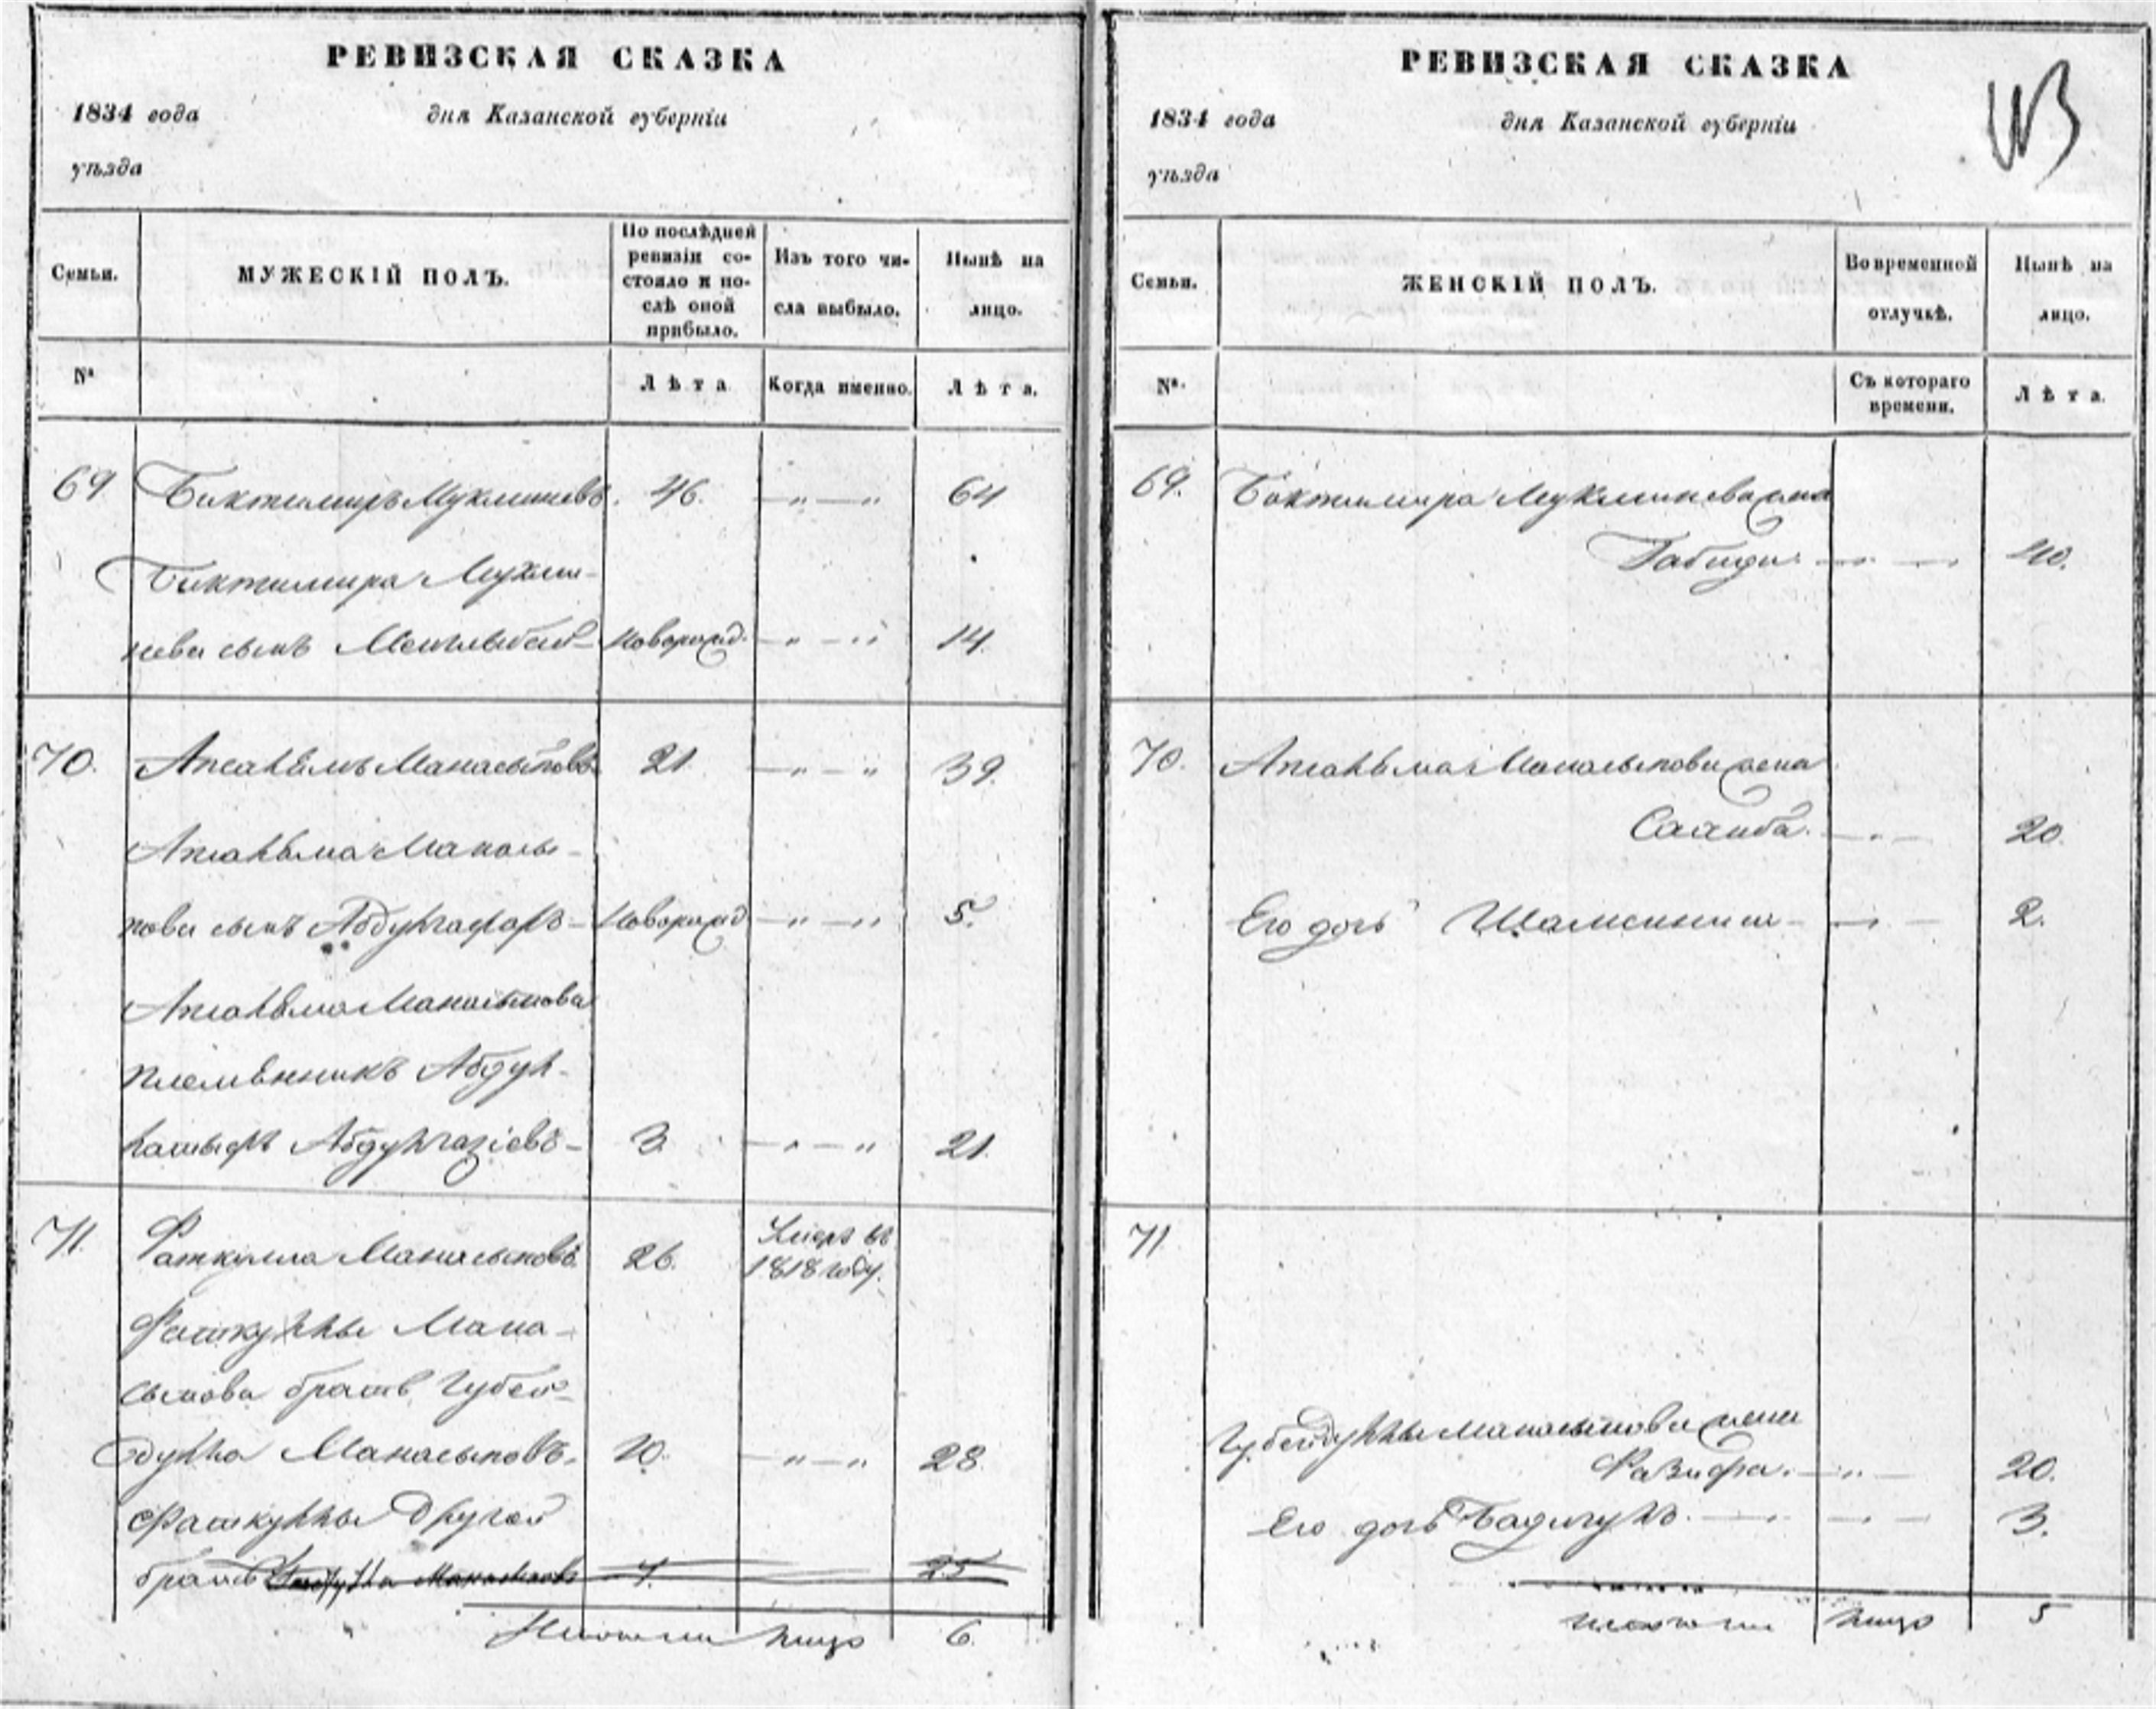 РЕВИЗСКАЯ СКАЗКА
1834 года дня Казанской губерніи
уѣзда
Семьи. МУЖЕСКІЙ ПОЛЪ. По послѣдней ревизіи состояло и послѣ оной прибыло. Изъ того числа выбыло. Нынѣ на лицо.
№ Лѣта Когда именно. Лѣта.
69 Биктимиръ Мукминевъ. 46. —„—„ 64
Биктимира Мукми-
нева сынъ новорожд. —„—„ 14.
70. Апсалямъ Манасыповъ 21 —„—„ 39.
Апсаляма Манасы-
пова сынъ Абдулгафаръ — новорожд —„—„ 5.
Апсаляма Манасыпова
племянникъ Абдул-
Абдулгазіевъ — 3. —„—„ 21.
71. Фаткулла Манасыповъ. 26. Умеръ въ
1818 году.
Фаткуллы Мана-
сыпова братъ Губей-
дулла Манасыповъ. 10. —„—„ 28.
Фаткуллы другой
братъ Манасыповъ 7. 25
Итого на лицо 6.
РЕВИЗСКАЯ СКАЗКА
1834 года дня Казанской губерніи
уѣзда
Семьи. ЖЕНСКІЙ ПОЛЪ. Во временной отлучкѣ. Нынѣ на лицо.
№. Съ котораго времени. Лѣта.
69. Биктимира Мукминева жена
Габида. 40.
70. Апсаляма Манасыпова жена
20.
Его дочь 2.
71
Губейдуллы Манасыпова жена
Фазифа. —„— 20.
Его дочь 3.
на лицо 5